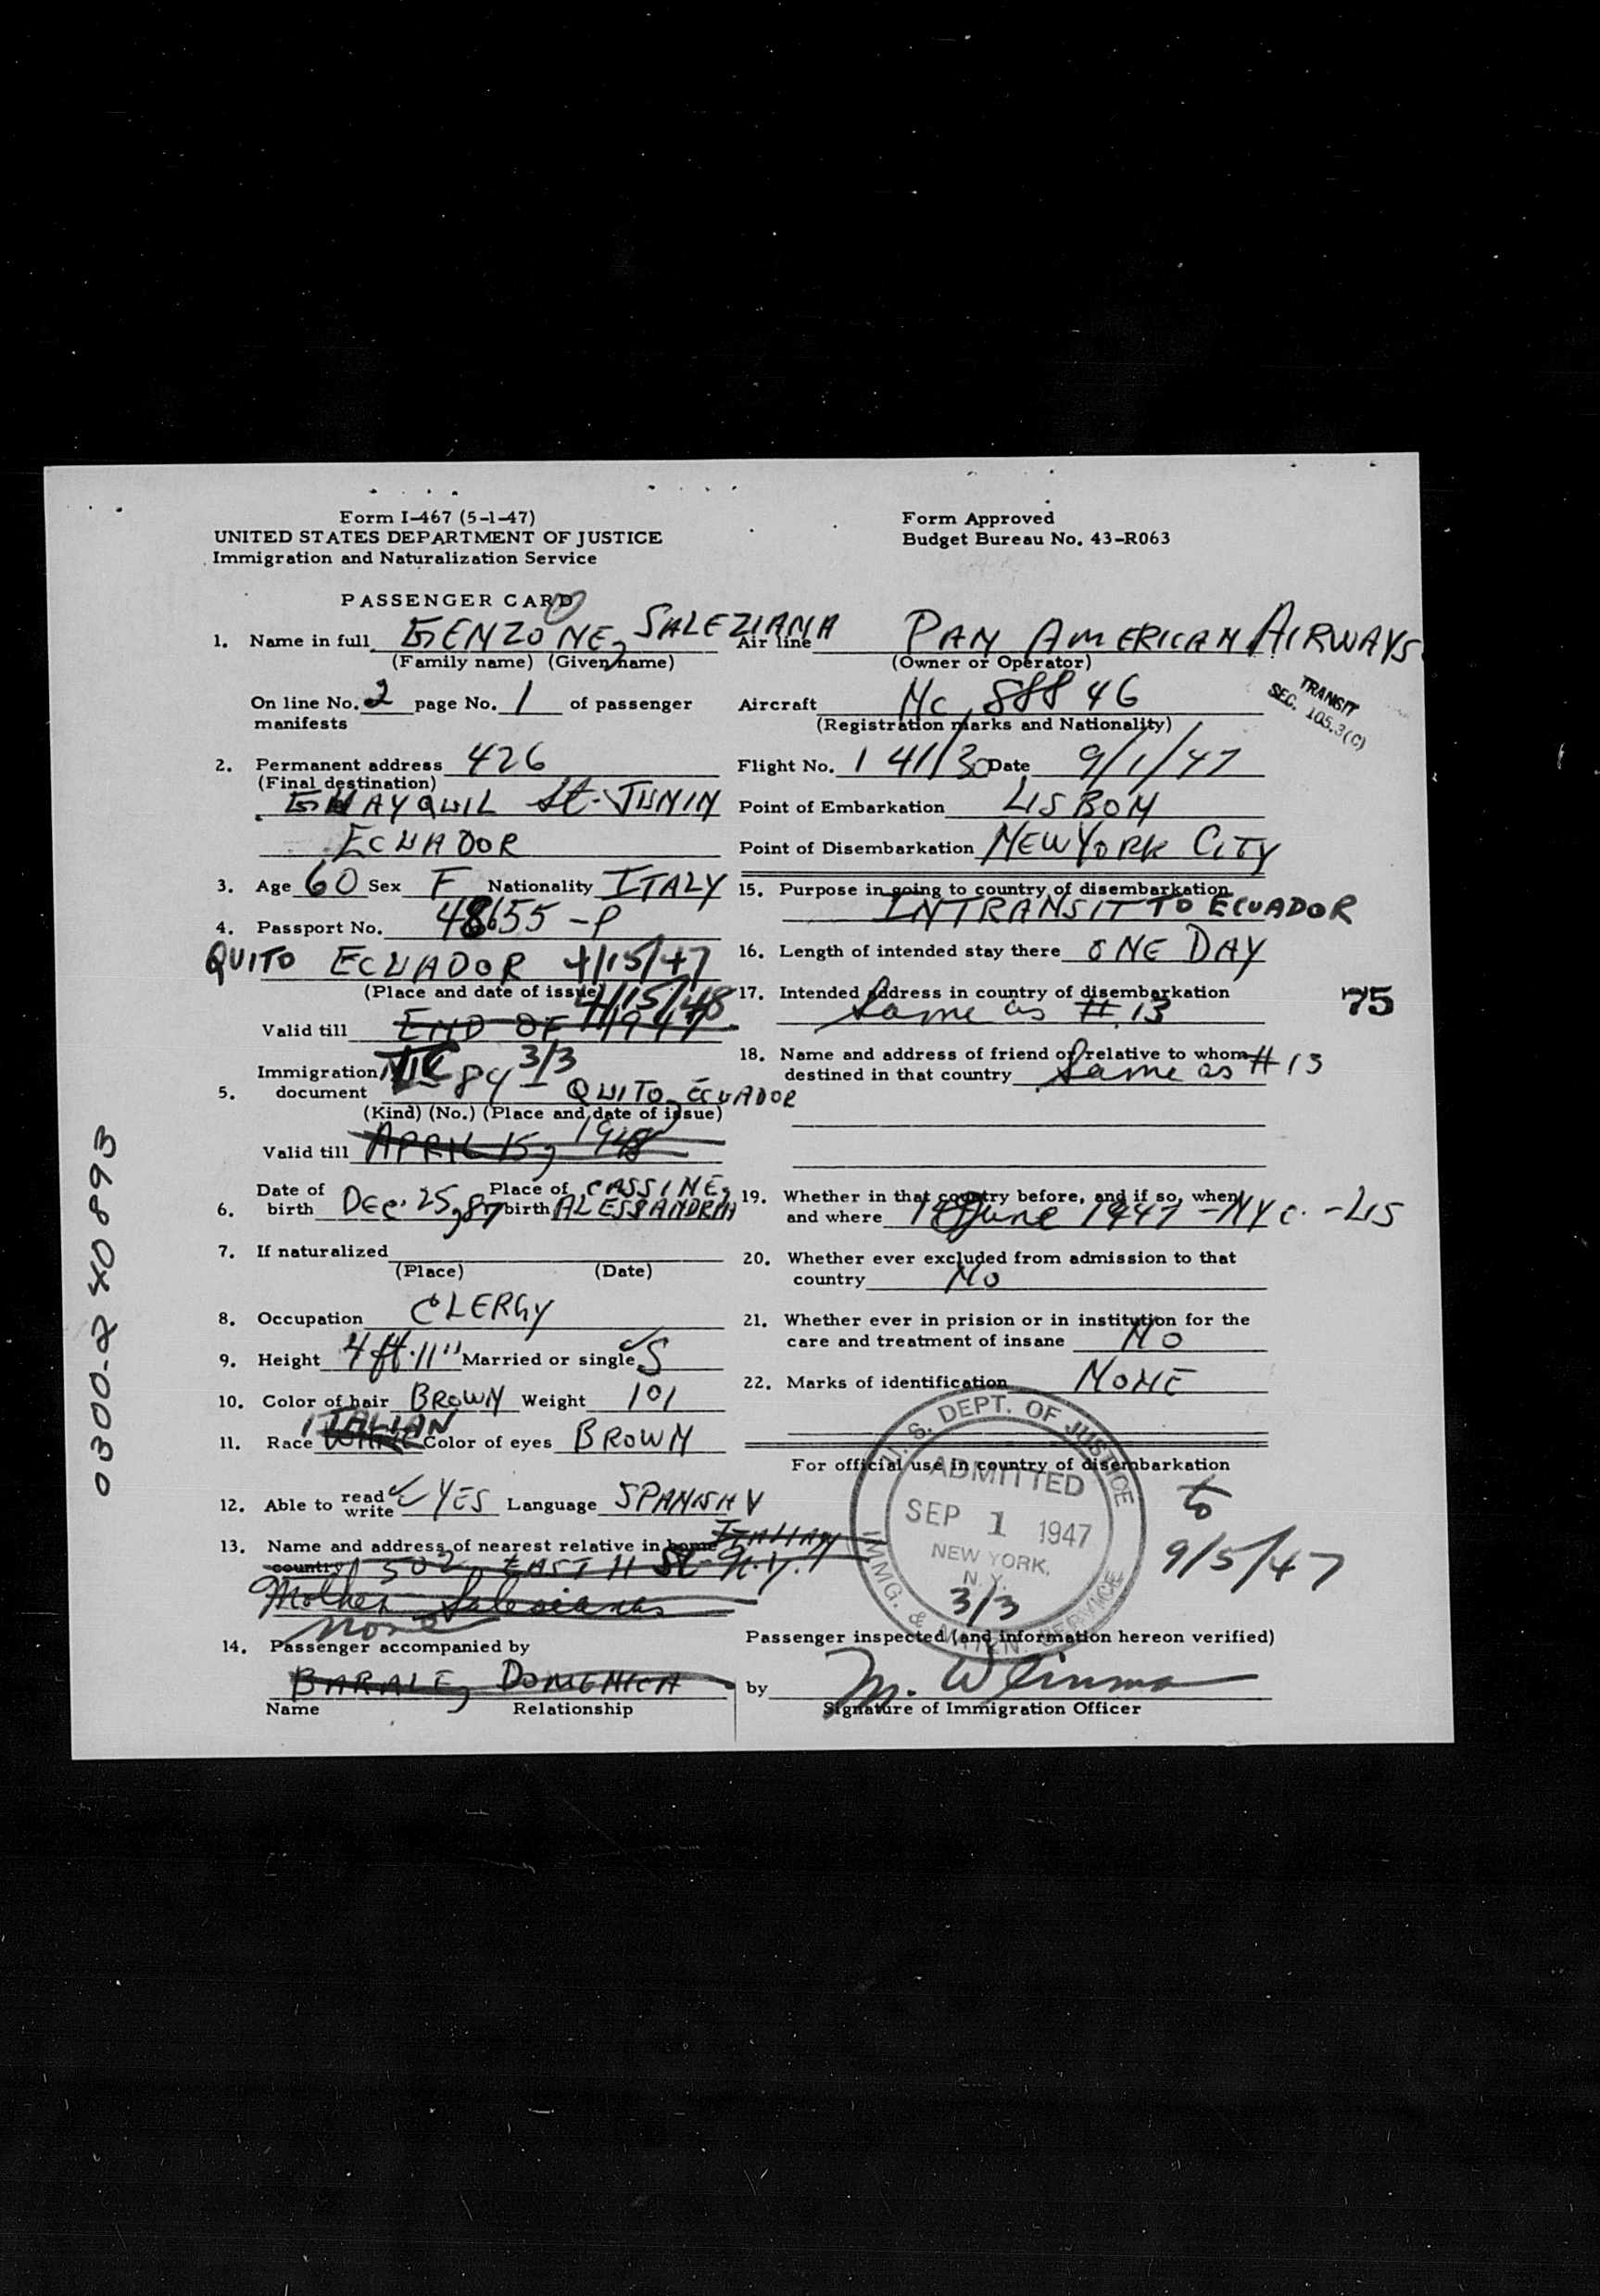 Form I-467 (5-1-47)
UNITED STATES DEPARTMENT OF JUSTICE
Immigration and Naturalization Service
Form Approved
Budget Bureau No. 43-R063
PASSENGER CARD
1. Name in full GENZONE, SALEZIANA
(Family name) (Given name)
Air line PAN AMERICAN AIRWAYS
(Owner or Operator)
On line No. 2 page No. 1 of passenger
manifests
Aircraft NC 88846
(Registration marks and Nationality)
TRANSIT
SEC. 105.3(C)
2. Permanent address 426
(Final destination)
GUAYQUIL St. JUNIN
ECUADOR
Flight No. 141/30 Date 9/1/47
Point of Embarkation LISBON
Point of Disembarkation NEW YORK CITY
3. Age 60 Sex F Nationality ITALY
4. Passport No. 48655-P
QUITO ECUADOR 4/15/47
(Place and date of issue)
4/15/48
Valid till END OF 1947
Immigration
5. document 84 3/3 QUITO, ECUADOR
(Kind) (No.) (Place and date of issue)
Valid till APRIL 15, 1948
6. Date of birth DEC. 25, 87 Place of birth CASSINE,
ALESSANDRIA
7. If naturalized
(Place) (Date)
8. Occupation CLERGY
9. Height 4 ft. 11" Married or single S
10. Color of hair BROWN Weight 101
ITALIAN
11. Race WHITE Color of eyes BROWN
12. Able to read write YES Language SPANISH
ITALIAN
13. Name and address of nearest relative in home
country 502 EAST 11 St- N.Y.
Mother Salesianas
None
14. Passenger accompanied by
BARALE, DOMENICA
Name Relationship
15. Purpose in going to country of disembarkation
INTRANSIT TO ECUADOR
16. Length of intended stay there ONE DAY
17. Intended address in country of disembarkation
Same as #13
75
18. Name and address of friend or relative to whom
destined in that country Same as #13
19. Whether in that country before, and if so, when
and where 18 June 1947 - NYC. - LIS
20. Whether ever excluded from admission to that
country NO
21. Whether ever in prision or in institution for the
care and treatment of insane NO
22. Marks of identification NONE
For official use in country of disembarkation
U. S. DEPT. OF JUSTICE
ADMITTED
SEP 1 1947
NEW YORK,
N. Y.
3/3
IMMG. & NATZN. SERVICE
to
9/5/47
Passenger inspected (and information hereon verified)
by
Signature of Immigration Officer
0300-240893